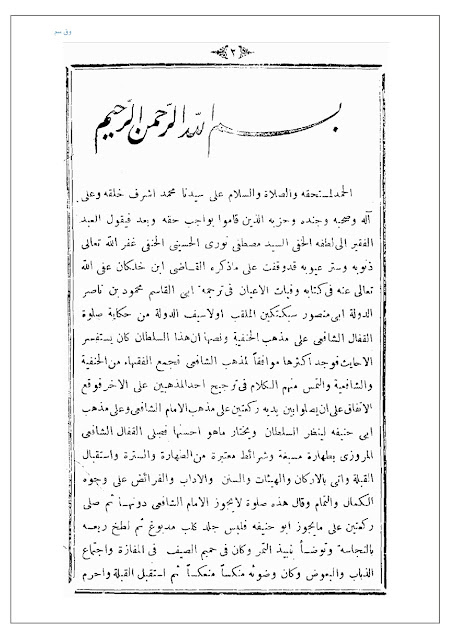 وقى سو
٢
بسم الله الرحمن الرحيم
الحمد لمستحقه والصلاة والسلام على سيدنا محمد اشرف خلقه وعلى
آله وصحبه وجنده وحزبه الذين قاموا بواجب حقه وبعد فيقول العبد
الفقير الى لطفه الخفى السيد مصطفى نورى الحسينى الحنفى غفر الله تعالى
ذنوبه وستر عيوبه قدوقفت على ماذكره القاضى ابن خلكان عفى الله
تعالى عنه فى كتابه وفيات الاعيان فى ترجمة ابى القاسم محمود بن ناصر
الدولة ابى منصور سبكتكين الملقب اولاسيف الدولة من حكاية صلوة
القفال الشافعى على مذهب الحنفية ونصها ان هذا السلطان كان يستفسر
الاحاديث فوجد اكثرها موافقاً لمذهب الشافعى فجمع الفقهاء من الحنفية
والشافعية والتمس منهم الكلام فى ترجيح احدالمذهبين على الاخر فوقع
الاتفاق على ان يصلوا بين يديه ركعتين على مذهب الامام الشافعى وعلى مذهب
ابى حنيفه لينظر السلطان ويختار ماهو احسنها فصلى القفال الشافعى
المروزى بطهارة مسبغة وشرائط معتبرة من الطهارة والسترة واستقبال
القبلة واتى بالاركان والهيئات والسنن والاداب والفرائض على وجوه
الكمال والتمام وقال هذه صلوة لايجوز الامام الشافعى دونهـا ثم صلى
ركعتين على مايجوز ابو حنيفه فلبس جلد كلب مدبوغ ثم لطخ ربعه
بالنجاسة وتوضأ بنبيذ التمر وكان فى حميم الصيف فى المفازة واجتماع
الذباب والبعوض وكان وضوئه منكساً منعكساً ثم استقبل القبلة واحرم